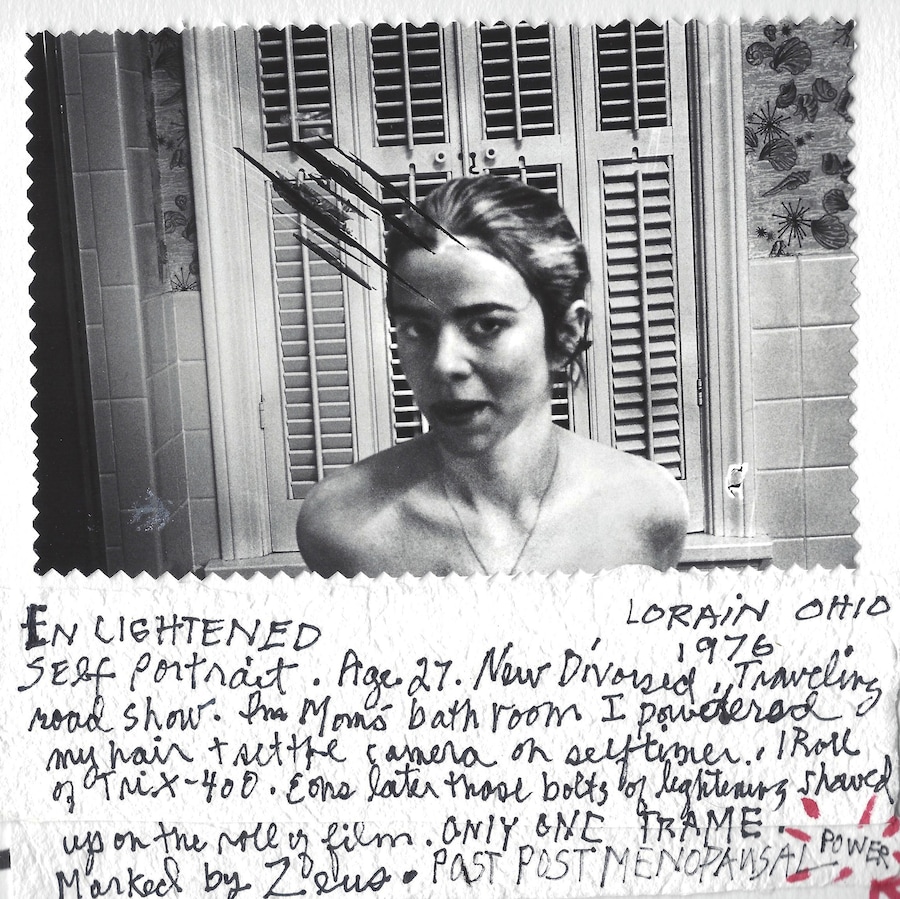 EN LIGHTENED
LORAIN OHIO
1976
Self Portrait. Age 27. New Divorsed, Traveling
road show. In Moms bathroom I powdered
my hair + set the camera on selftimer. 1 Roll
of Tri X-400. Eons later those bolts of lightening showed
up on the roll of film. ONLY ONE FRAME.
Marked by Zeus. POST POST MENOPAUSAL
POWER